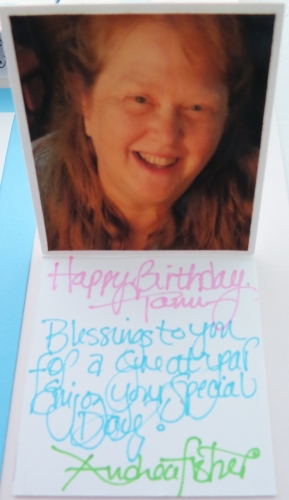 Happy Birthday,
Tammy
Blessings to you
for a Great year
Enjoy your Special
Day!
Andrea Fisher